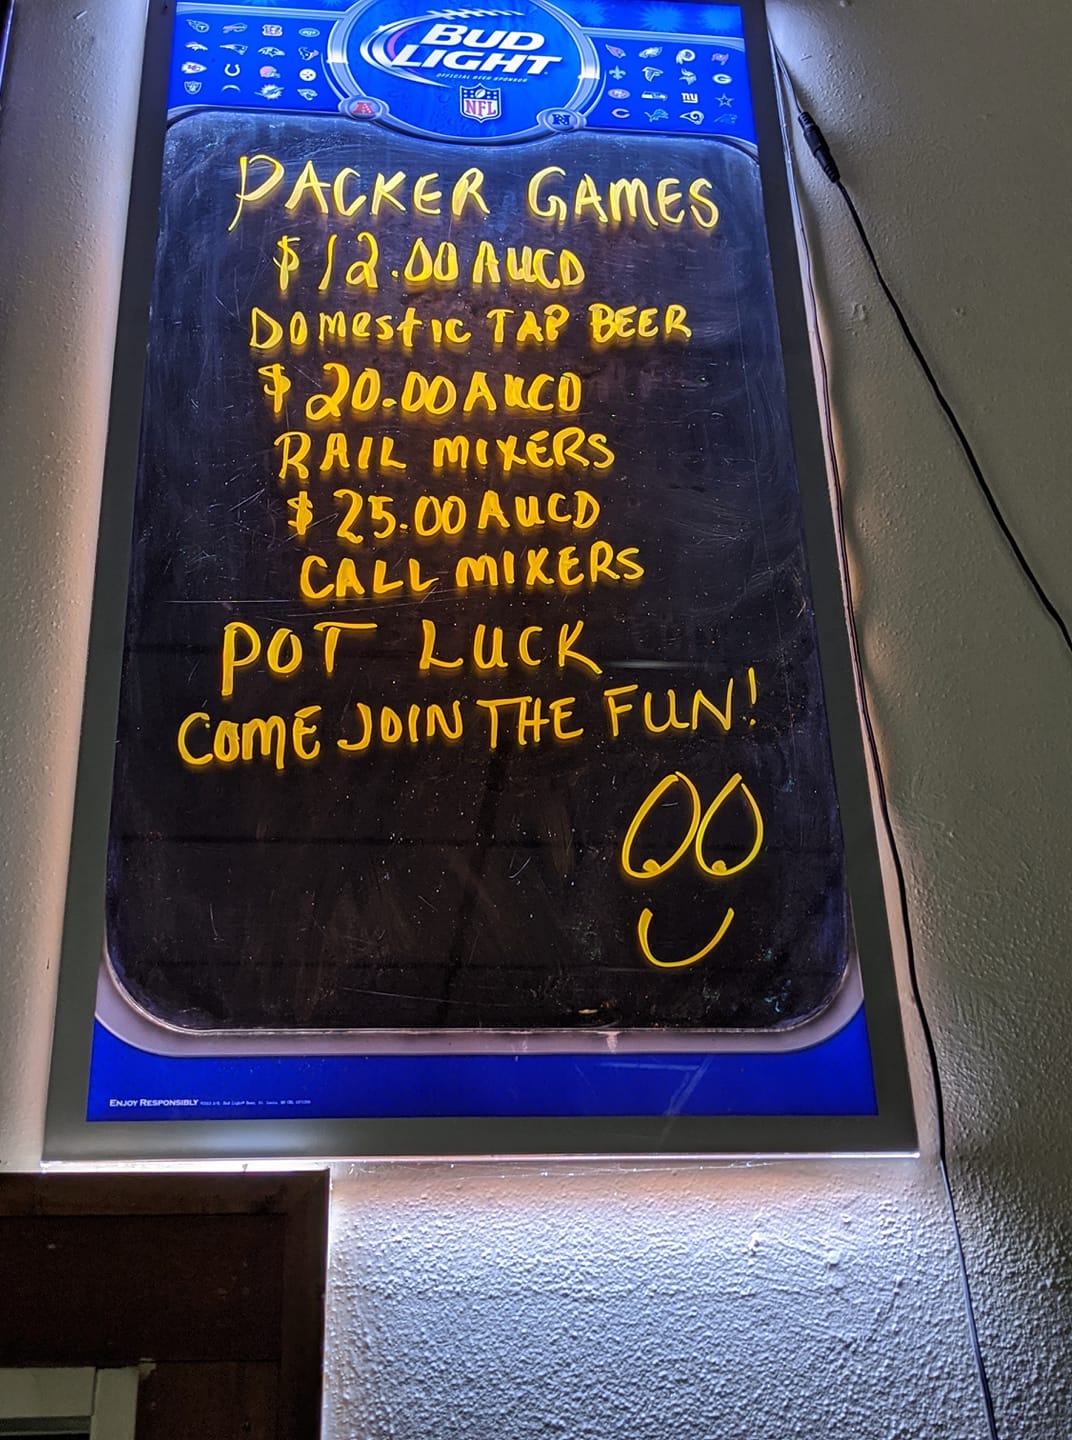 BUD
LIGHT
OFFICIAL BEER SPONSOR
NFL
PACKER GAMES
$12.00 AUCD
DOMESTIC TAP BEER
$20.00 AUCD
RAIL MIXERS
$25.00 AUCD
CALL MIXERS
POT LUCK
COME JOIN THE FUN!
ENJOY RESPONSIBLY